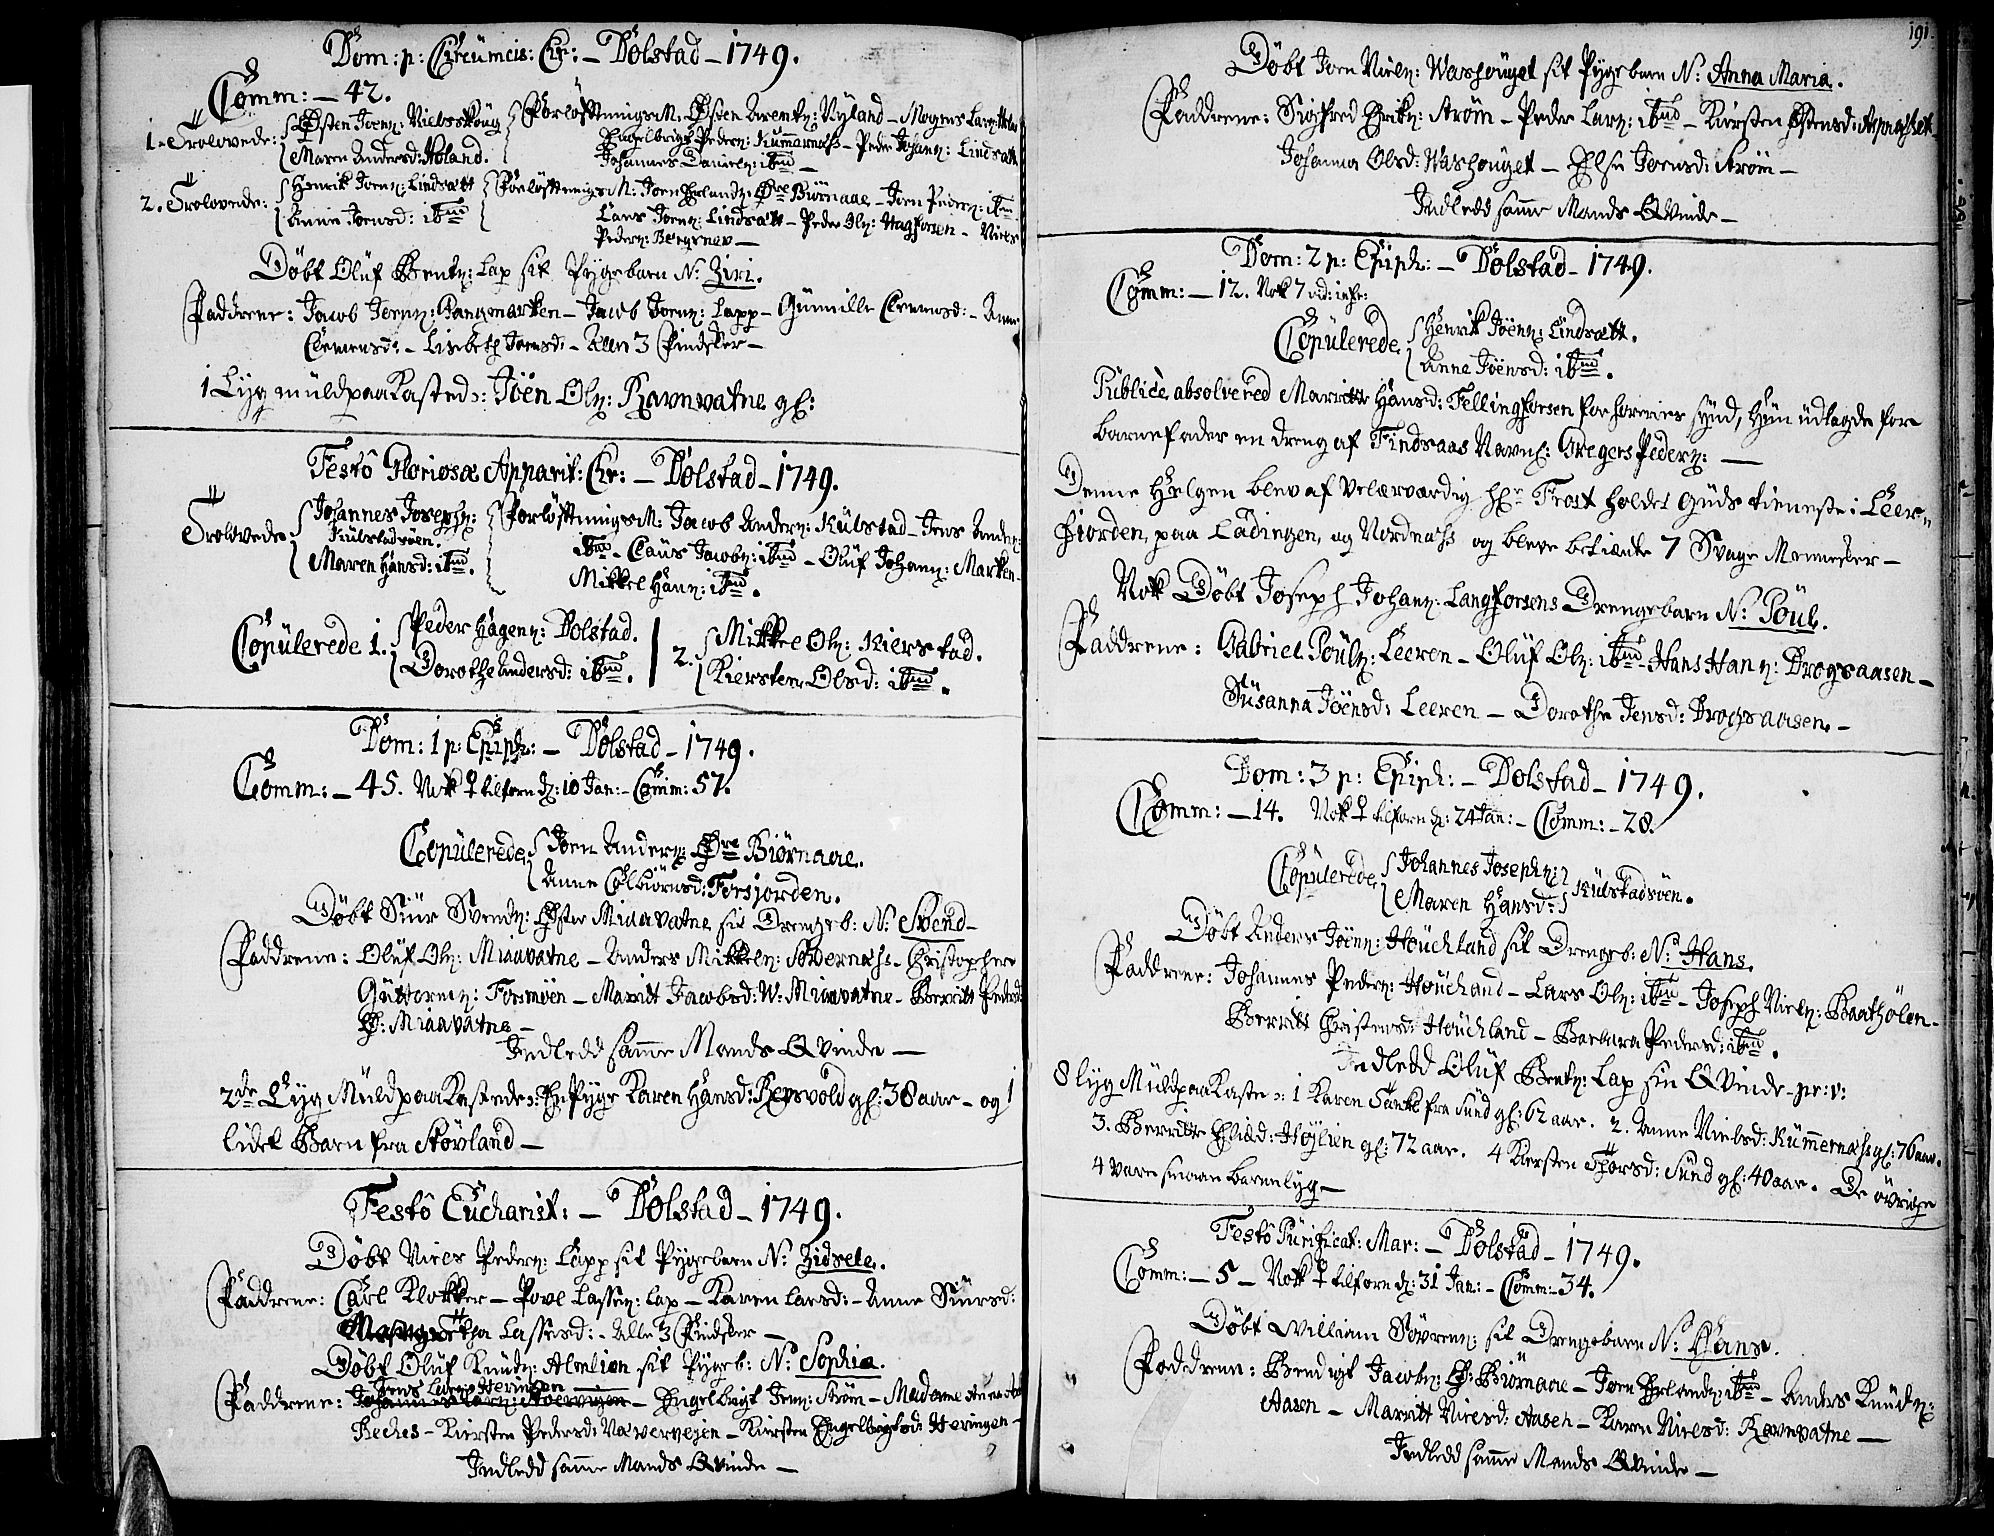 Dom: p: Circumcis: Chr: – Dolstad – 1749.
Comm: – 42.
1. Trolovede: Østen Joenß: Nielsskoug
Maren Andersd: Holand.
Forløftnings M. Østen Arentß: Nyland – Mogens Larß:
Engelbrigt Pederß: Kummernæss – Peder Johanß: Lindsætt
Johannes Danielß: ibid –
2. Trolovede: Henrik Joenß: Lindsætt
Anne Joensd: ibid
Forløftnings M: Joen Erlandß: Øre Biørnaae – Joen Pederß: ibid
Lars Joenß: Lindsætt – Peder Olß: Hagforsen – Niels
Pederß: Bergsnev –
Døbt Oluf Bentß: Lap sit Pygebarn N: Ziri.
Faddrene: Jacob Joenß: Pangmarken – Jacob Joenß: Lapp – Gunnille Clemensd: – Anne
Clemensd: – Lisbeth Joensd: – Alle 3 Findsker –
1 Lyg muldpaakasted: Joen Olß: Ravnvatne gl:
Festô Gloriosæ Apparit: Chr: – Dolstad – 1749.
Trolovede: Johannes Josephß:
Kulstadsøen.
Maren Hansd: ibid.
Forløftnings M: Jacob Anderß: Kulstad – Jens Anderß:
ibid – Claus Jacobß: ibid – Oluf Johanß: Marken –
Mikkel Hanß: ibid.
Copulerede 1. Peder Hagenß: Dolstad.
Dorothe Andersd: ibid.
2. Mikkel Olß: Kierstad.
Kiersten Olsd: ibid.
Dom: 1 p: Epiph: – Dolstad – 1749.
Comm: – 45. Nok ♀ tilforn d: 10 Jan: – Comm: 57.
Copulerede Joen Anderß: Øre Biørnaae.
Anne Colbiørnsd: Forsjorden.
Døbt Siur Svendß: Øster Miaavatne sit Drengeb: N: Svend –
Faddrene: Oluf Olß: Miaavatne – Anders Mikkelß: Søvernæss – Christopher
Guttormß: Forsmoen – Maritt Jacobsd: W: Miaavatne – Berritt Pedersd
Ø: Miaavatne –
Indledd samme Mands Qvinde –
2de Lyg Muldpaakastede: En Pyge Karen Hansd: Reisvold gl: 38 aar – og 1
lidet Barn fra Støvland –
Festô Eucharist: – Dolstad – 1749.
Døbt Niels Pederß: Lapp sit Pygebarn N: Zidsele.
Faddrene: Carl Klokker – Povl Lassesß: Lap – Karen Larsd: – Anne Siursd:
Margretha Lassesd: – Alle 3 Findsker –
Døbt Oluf Knudß: Almlien sit Pygeb: N: Sophia.
Jens Larß: Heringen
Faddrene: – Engelbrigt Jenß: Strøm – Madame
Reches – Kiersten Pedersd: Næververjen – Kiersten Engelbrigtsd: Heringen –
Indledd samme Mands Qvinde –
191.
Døbt Joen Nielß: Washouget sit Pygebarn N: Anna Maria.
Faddrene: Sigfred Erikß: Strøm – Peder Larß: ibid – Kiersten Østensd:
Johanna Olsd: Washouget – Else Joensd: Strøm –
Indledd samme Mands Qvinde –
Dom: 2 p: Epiph: – Dolstad – 1749.
Comm: – 12. Nok 7 vid: infr:
Copulerede Henrik Joenß: Lindsætt.
Anna Joensd: ibid.
Publicè absolvered Marritte Hansd: Fellingforsen for horeries synd, hun udlagde for
barnefader en dreng af Findraas Navnl: Gregers Pederß: –
Denne Helgen blev af Velærværdig Hr: Frost holdet Guds tieneste i Leer-
fiorden, paa Ladingen, og Nordnæss og bleve betiente 7 Svage Mennesker –
Nok Døbt Joseph Johanß: Langforsens Drengebarn N: Poul.
Faddrene: Gabriel Poulß: Leeren – Oluf Olß: ibid – Hans Hanß: Drogsaasen –
Susanna Joensd: Leeren – Dorothe Jensd: Drogsaasen. –
Dom: 3 p: Epiph: – Dolstad – 1749.
Comm: – 14. Nok ♀ tilforn d: 24 Jan: – Comm: – 28.
Copulerede Johannes Josephß:
Maren Hansd:
Kulstadsøen.
Døbt Anders Joenß: Houchland sit Drengeb: N: Hans.
Faddrene: Johannes Pederß: Houchland – Lars Olß: ibid – Joseph Nielß: Baatfiølen –
Berritt Christensd: Houchland – Barbara Pedersd: ibid.
Indledd Oluf Bentß: Lap sin Qvinde – pr: v:
8 lyg Muldpaakaste: 1 Karen Tanke fra Sund gl: 62 aar. 2. Anne Nielsd: Kummernæss gl: 76 aar.
3. Berritte Eliæd: Høylien gl: 72 aar. 4 Kiersten Thorsd: Sund gl: 40 aar. De øvrige
4 vare smaae barnelyg –
Festô Purificat: Mar: – Dolstad – 1749.
Comm: – 5 – Nok ♀ tilforn d: 31 Jan: – Comm: – 34.
Døbt William Søvrenß: sit Drengebarn N: Hans.
Faddrene: Bendigt Jacobß: Ø: Biørnaae – Joen Erlandß: ibid – Anders Knudß:
Aasen – Marritt Nielsd: Aasen – Karen Nielsd: Ravnvatne –
Indledd samme Mands Qvinde –